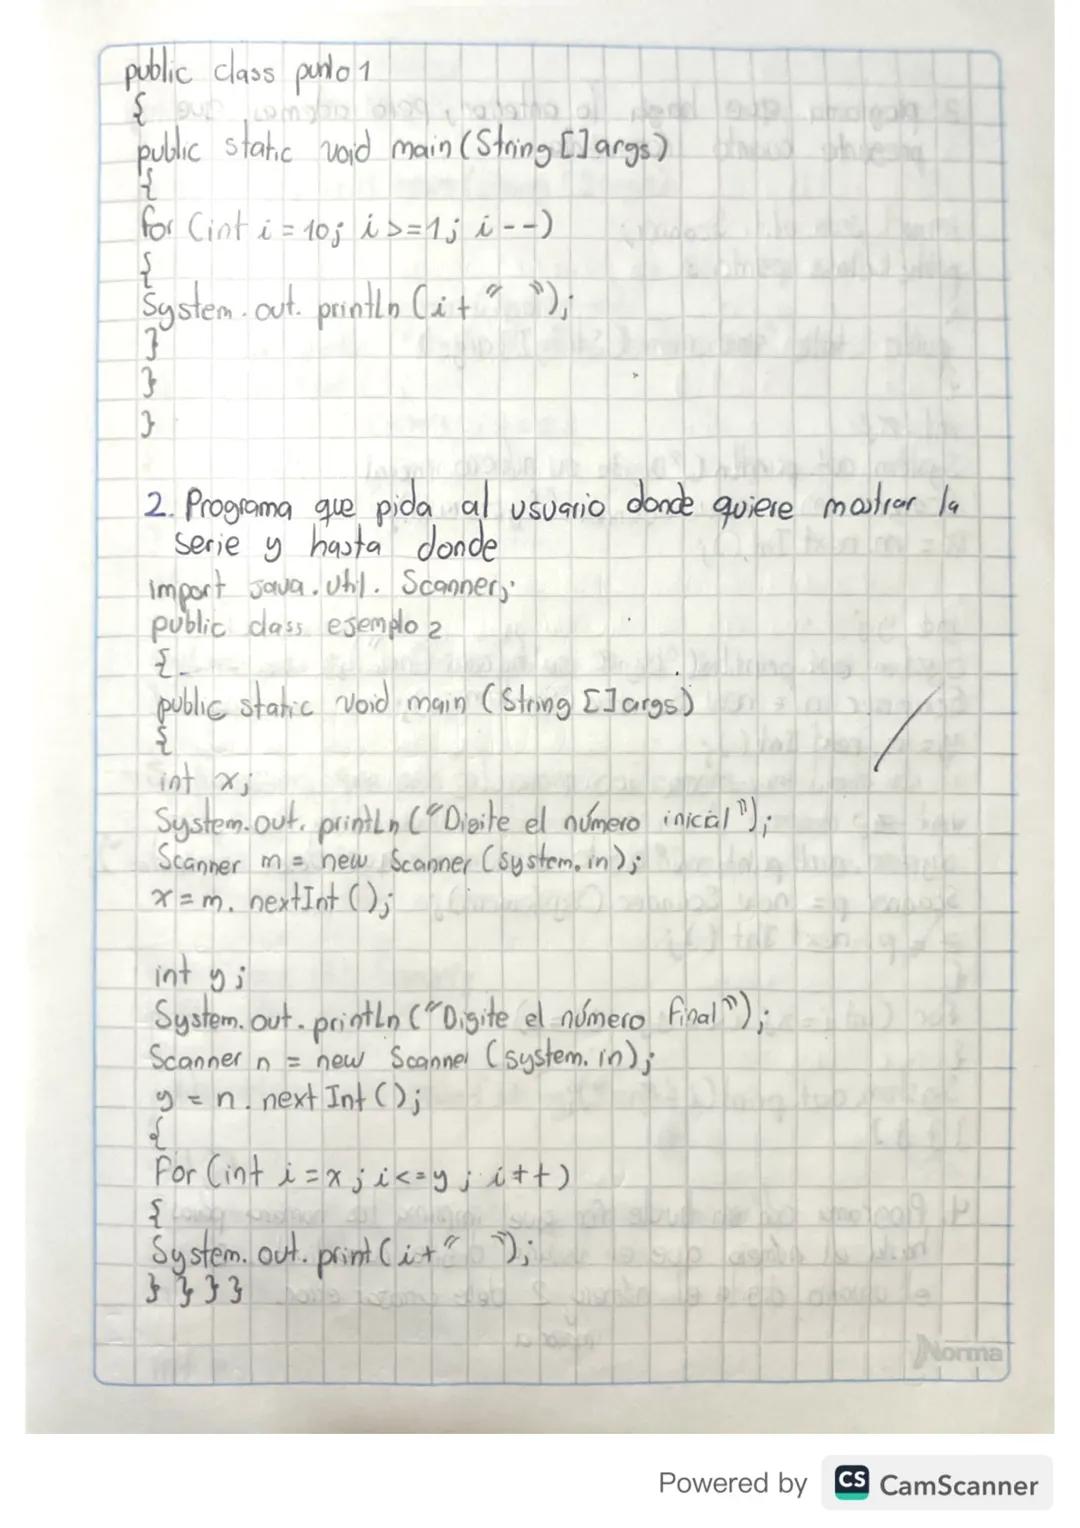 public class punto 1
{
public static void main (String [] args)
{
for (int i = 10; i >= 1; i --)
{
System.out.println (i + " ");
}
}
}
2. Programa que pida al usuario donde quiere mostrar la
serie y hasta donde
import java.util.Scanner;
public class ejemplo 2
{
public static void main (String [] args)
{
int x;
System.out.println ("Digite el número inicial");
Scanner m = new Scanner (system.in);
x = m. nextInt ();
int y;
System.out.println ("Digite el número final");
Scanner n = new Scanner (system.in);
y = n. next Int ();
{
For (int i = x; i <= y; i ++)
{
System.out.print (i + " ");
} } } }
Norma
Powered by CS CamScanner